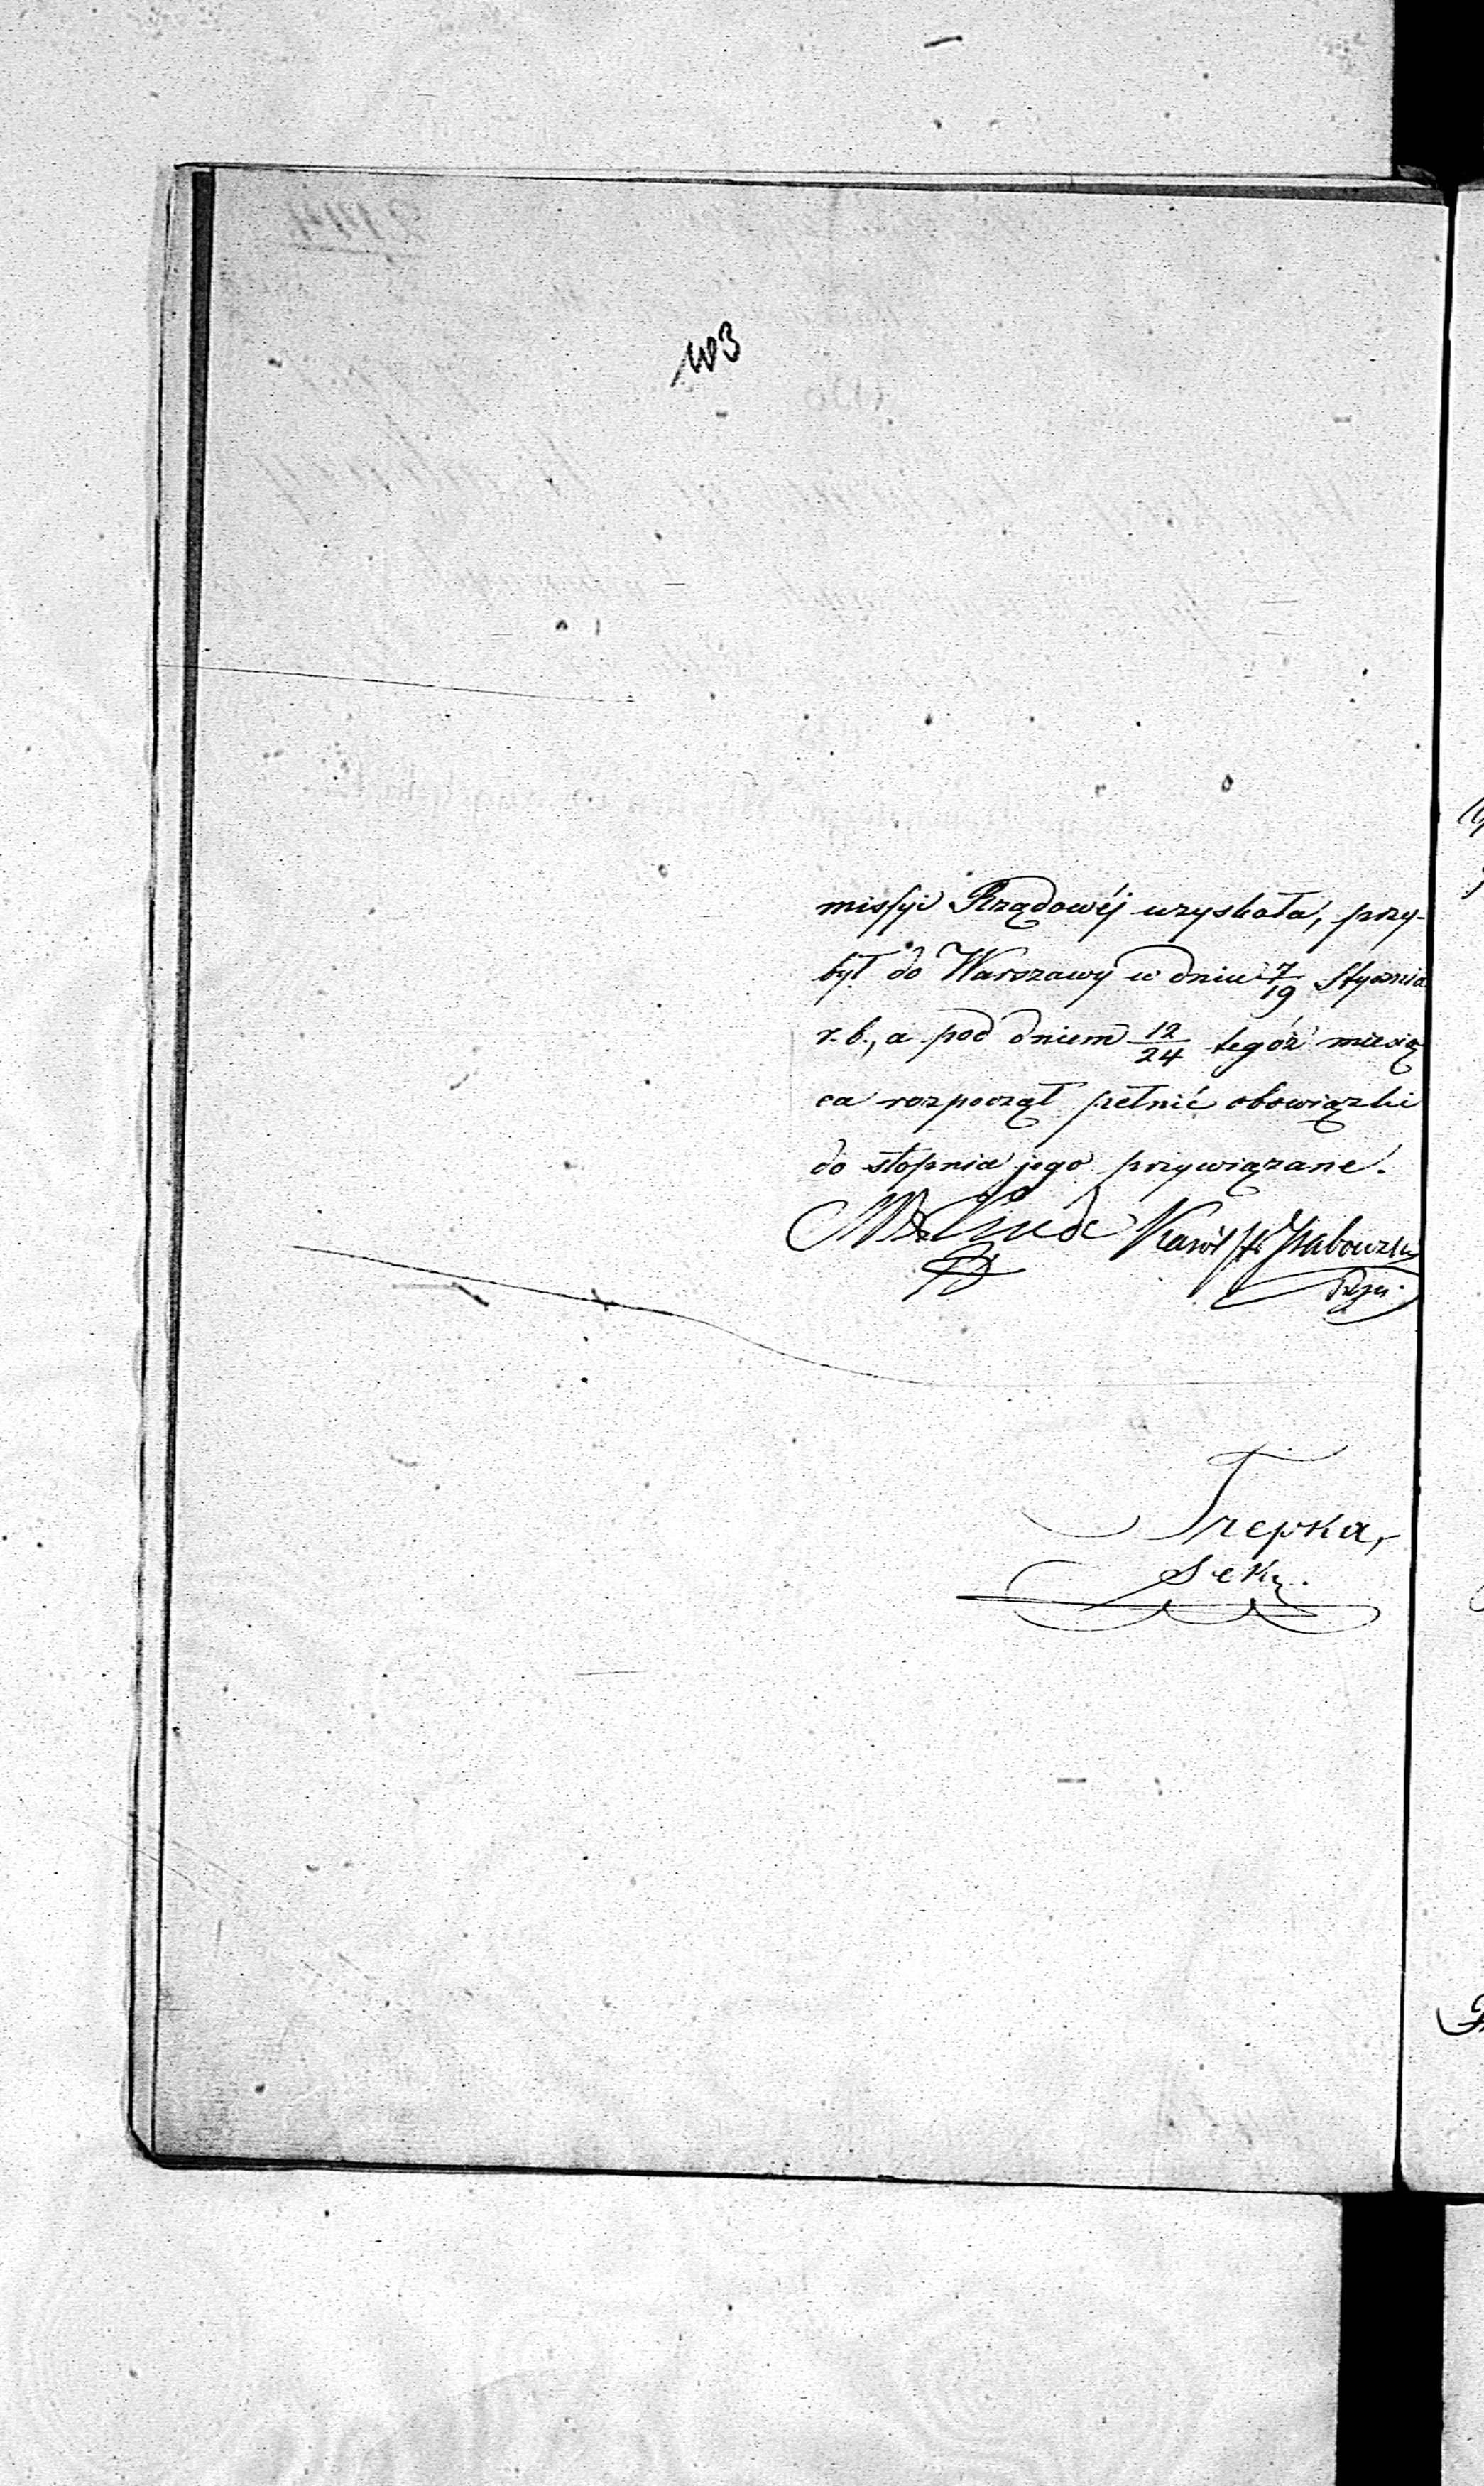 103
missyi Rządowéj uzyskała, przy-
był do Warszawy w dniu 7/19 Stycznia
r. b., a pod dniem 12/24 tegóż miesią
ca rozpoczął pełnić obowiązki
do stopnia jego przywiązane.
Linde Karól
Trepka,
Sekr.